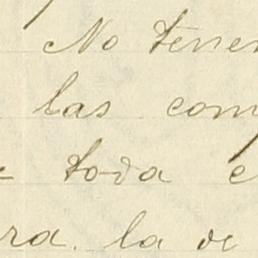 No tener
las com
toda e
ra. la de